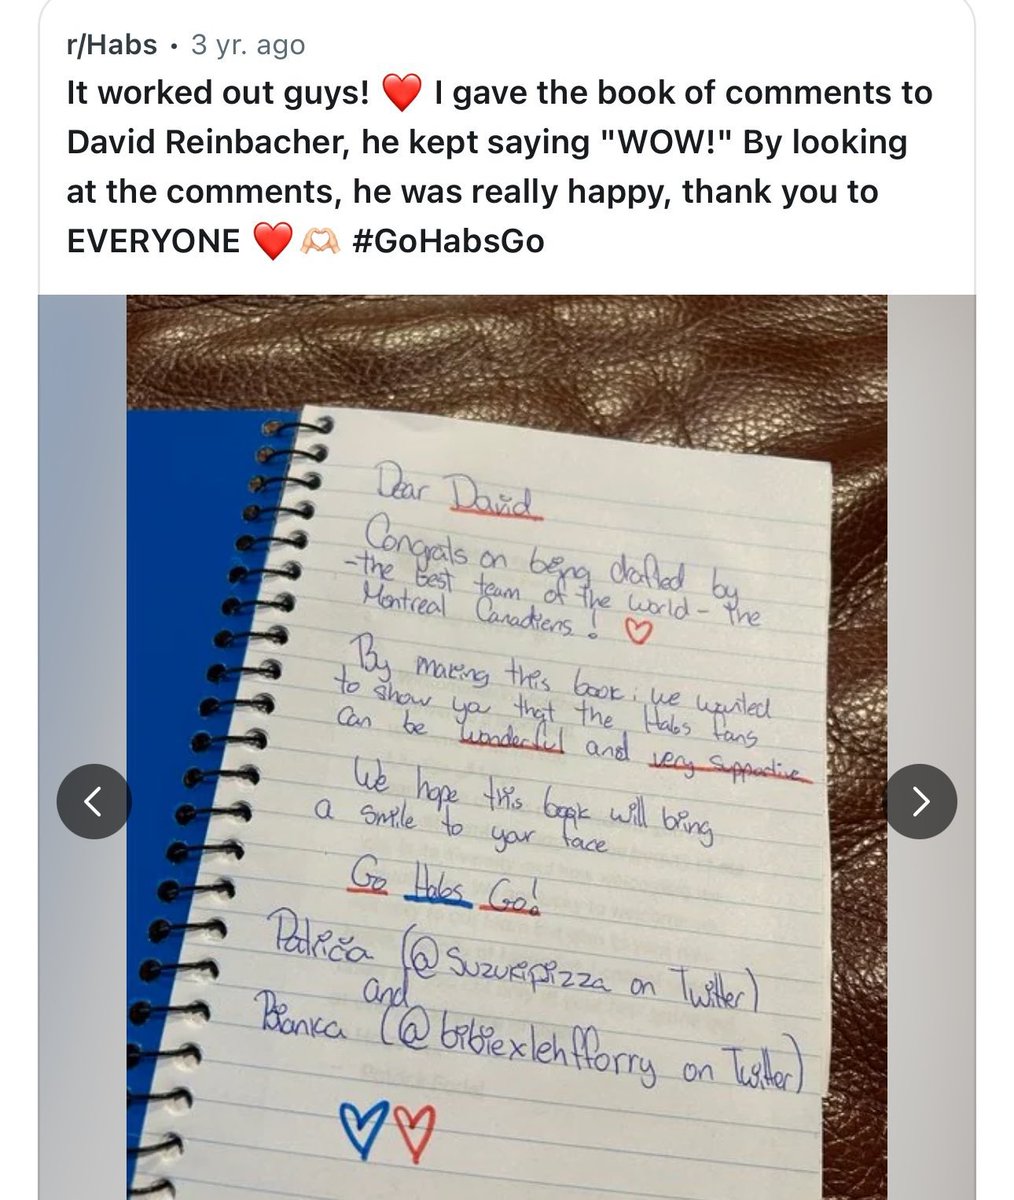 r/Habs • 3 yr. ago
It worked out guys! ❤️ I gave the book of comments to
David Reinbacher, he kept saying "WOW!" By looking
at the comments, he was really happy, thank you to
EVERYONE ❤️🫶🏻 #GoHabsGo
Dear David
Congrats on being drafted by
-the best team of the world- the
Montreal Canadiens! ♡
By making this book, we wanted
to show you that the Habs fans
can be wonderful and very supportive
We hope this book will bring
a smile to your face
Go Habs Go!
Patricia (@Suzukipizza on Twitter)
and
Bianca (@bibiexlehfforry on Twitter)